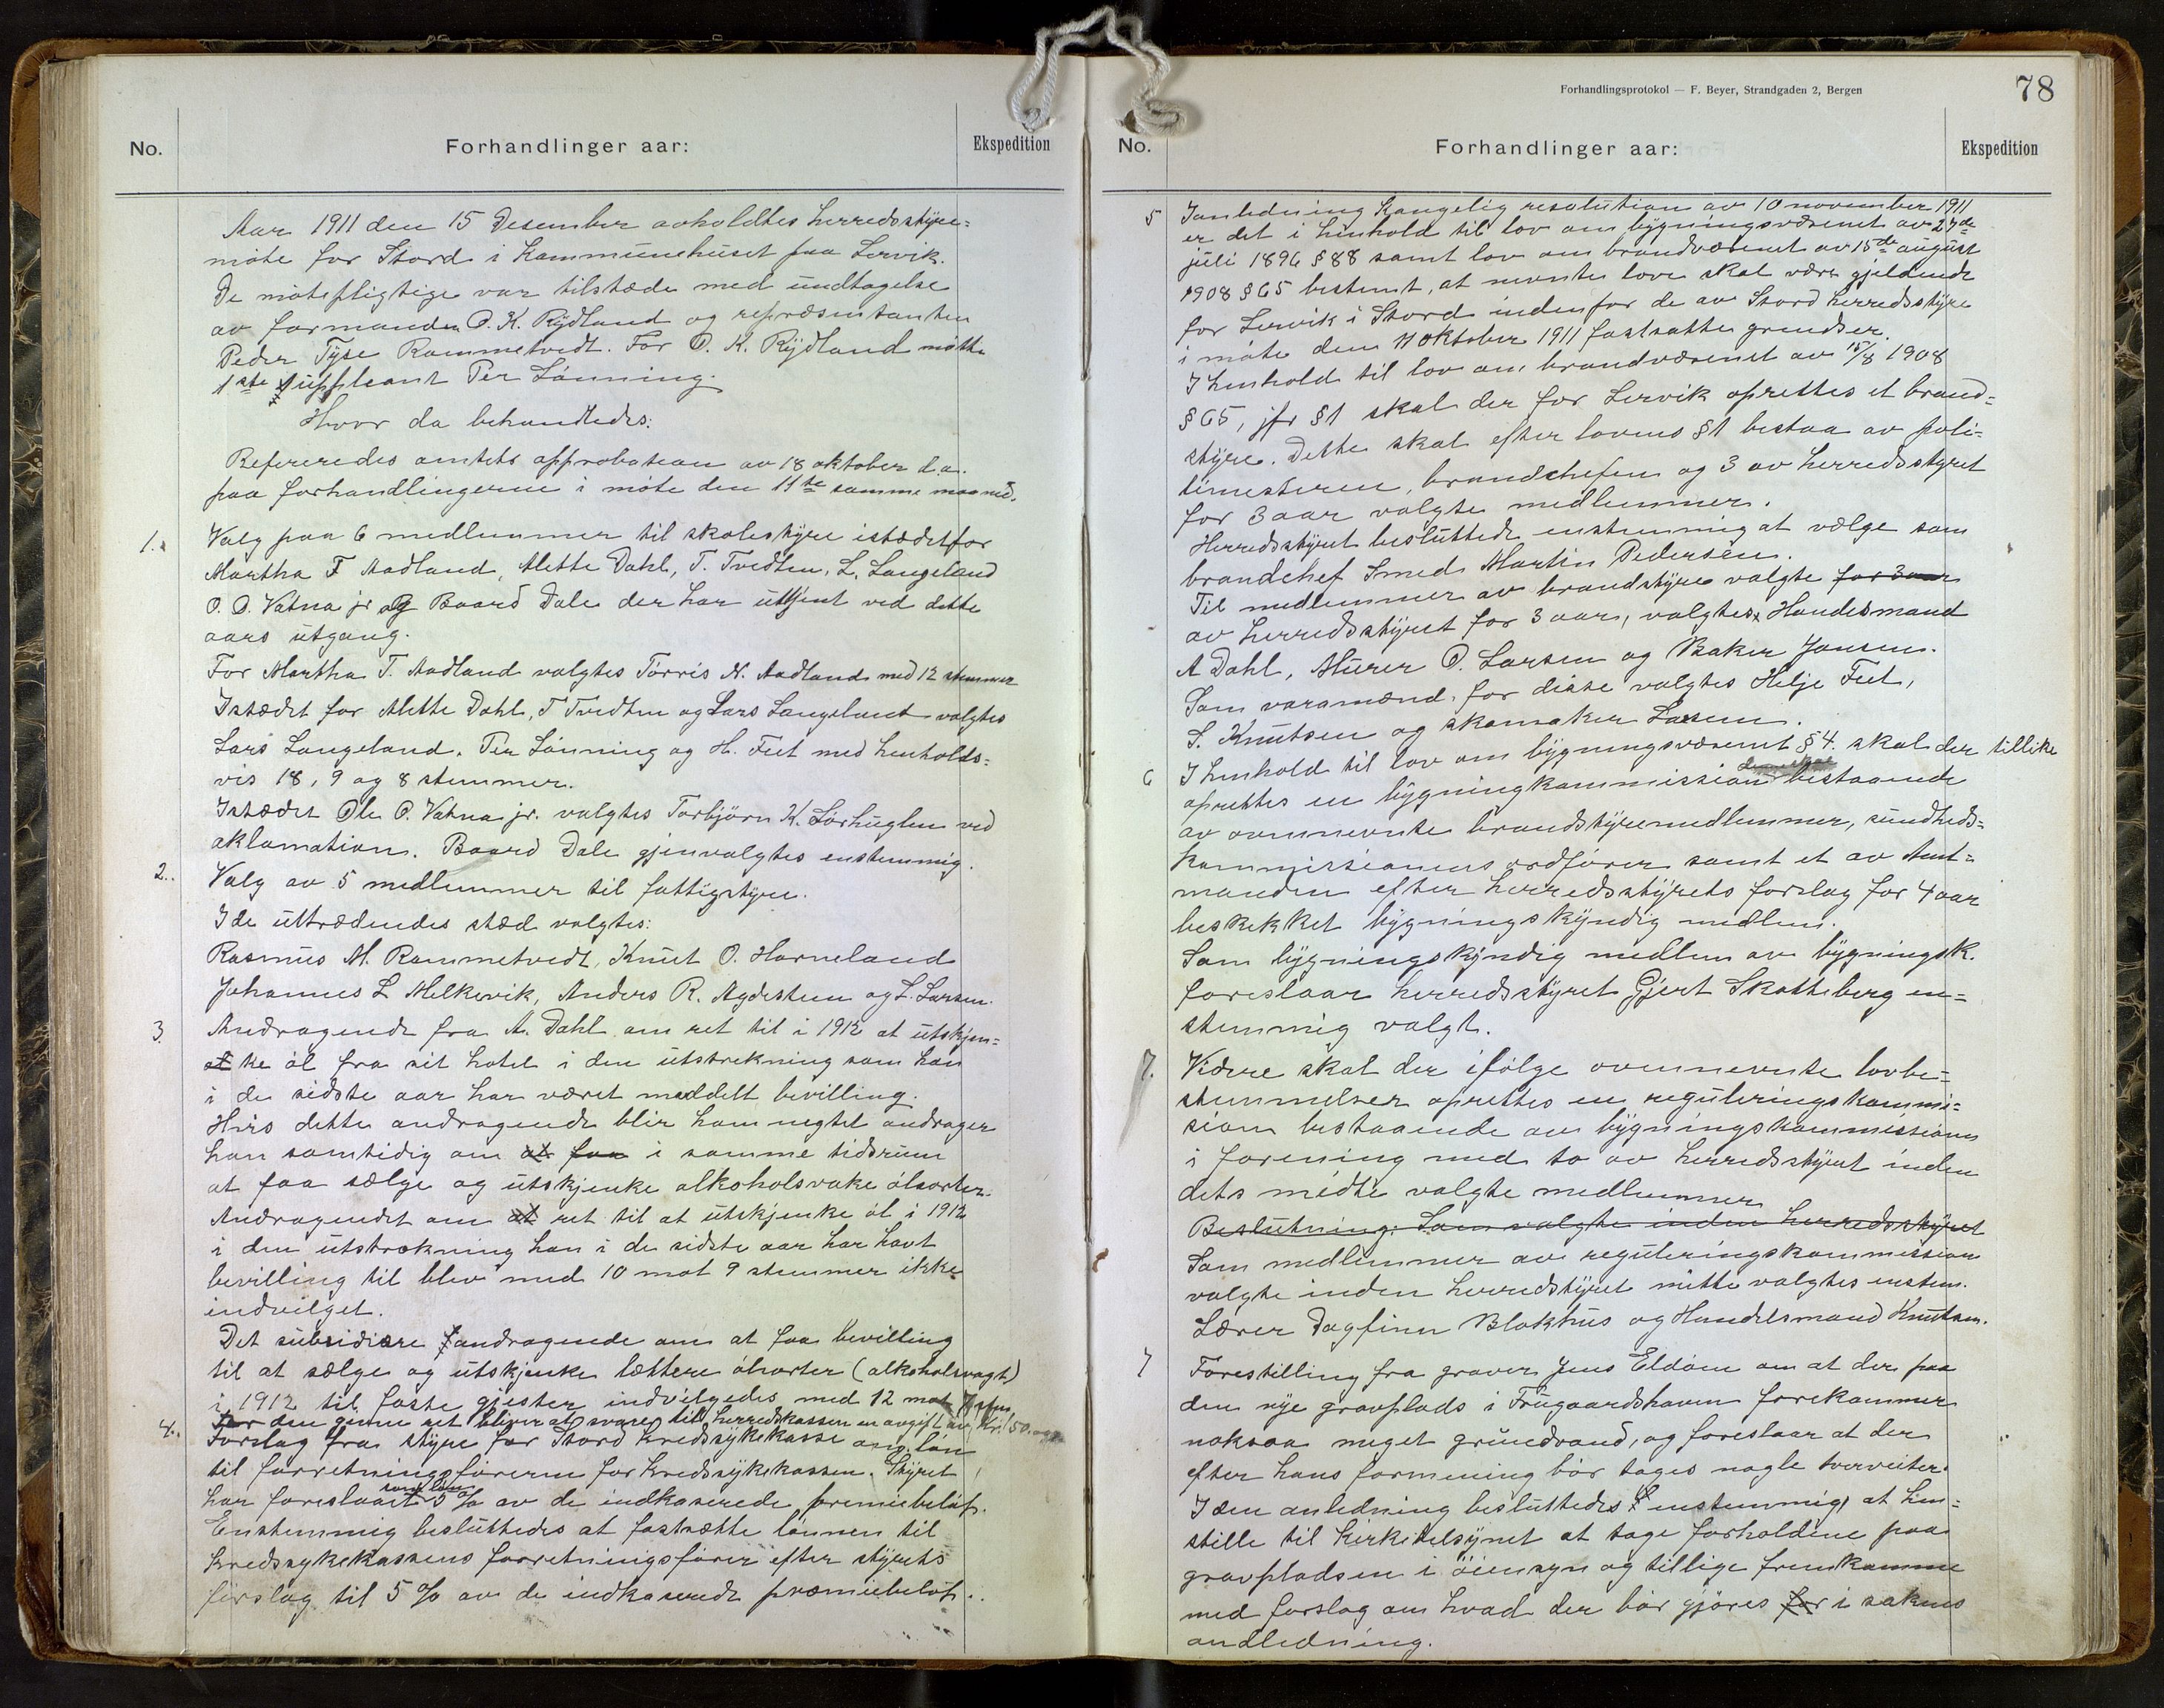 No.
Forhandlinger aar:
Ekspedition
Aar 1911 den 15 Desember avholdtes herredsstyre=
møte for Stord i Kommunehuset paa Lervik.
De møtepligtige var tilstæde med undtagelse
av formanden O. K. Rydland og repræsentanten
Peder Tyse Rommetvedt. For O. K. Rydland møtte
1ste suppleant Per Lønning.
Hvor da behandledes:
Refereredes amtets approbation av 18 oktober d.a.
paa forhandlingerne i møte den 11te samme maaned.
1. Valg paa 6 medlemmer til skolestyre istædetfor
Martha T Aadland, Mette Dahl, T. Tvedten, L. Langeland
O. O. Vatna jr og Baard Dale der har uttjent ved dette
aars utgang.
For Martha T. Aadland valgtes Tørris N. Aadland med 12 stemmer
Istædet for Mette Dahl, T Tvedten og Lars Langeland valgtes
Lars Langeland. Per Lønning og H. Feet med henholds=
vis 18, 9 og 8 stemmer.
Istædet Ole O. Vatna jr. valgtes Torbjørn K. Sørhuglen ved
aklamation. Baard Dale gjenvalgtes enstemmig.
2. Valg av 5 medlemmer til fattigstyre.
I de uttrædendes stæd valgtes:
Rasmus M. Rommetvedt, Knut O. Horneland
Johannes L Melkevik, Anders R. Agdesteen og L. Larsen.
3. Andragende fra A. Dahl om ret til i 1912 at utskjen=
at ke øl fra sit hotel i den utstrekning som han
i de sidste aar har været meddelt bevilling.
Hvis dette andragende blir ham negtet andrager
han samtidig om at faa i samme tidsrum
at faa sælge og utskjenke alkoholsvake ølsorter.
Andragendet om at ret til at utskjenke øl i 1912
i den utstrækning han i de sidste aar har havt
bevilling til blev med 10 mot 9 stemmer ikke
indvilget.
Det subsidiære andragende om at faa bevilling
til at sælge og utskjenke lættere ølsorter (alkoholsvagt)
i 1912 til faste gjester indvilgedes med 12 mot 7 stem
For den genne ret bliver at svare til Herredskassen en avgift av Kr. 50.
4. Forslag fra styre for Stord kredssykekasse ang. løn
til forretningsføreren for kredssykekassen. Styret
har foreslaait som løn 5 % av de indkaserede premiebeløp.
Enstemmig besluttedes at fastsætte lønnen til
kredssykekassens forretningsfører efter styrets
forslag til 5 % av de indkaserede præmiebeløp.
Forhandlingsprotokol — F. Beyer, Strandgaden 2, Bergen
78
No.
Forhandlinger aar:
Ekspedition
5 Ianledning Kongelig resolution av 10 november 1911
er det i henhold til lov om bygningsvæsenet av 27de
juli 1896 § 88 samt lov om brandvæsenet av 15de august
1908 § 65 bestemt, at nevnte love skal være gjeldende
for Lervik i Stord indenfor de av Stord herredsstyre
i møte den 11 oktober 1911 fastsatte grendser.
I henhold til lov om brandvæsenet av 15/8 1908
§ 65, jfr § 1 skal der for Lervik oprettes et brand=
styre. Dette skal efter lovens § 1 bestaa av poli=
timesteren, brandchefen og 3 av herredsstyret
for 3 aar valgte medlemmer.
Herredsstyret besluttede enstemmig at vælge som
brandchef Smed Martin Pedersen.
Til medlemmer av brandstyre valgte for 3 aar
av herredsstyret for 3 aar, valgtes Handelsmand
A Dahl, Murer O. Larsen og Baker Jansen.
Som varamænd for disse valgtes Helje Feet,
S. Knutsen og skomaker Lassen.
6 I henhold til lov om bygningsvæsenet § 4. skal der tillike
oprettes en bygningkommission bestaaende
av ovennevnte brandstyremedlemmer, sundheds=
kommissionens ordfører samt et av Amt=
manden efter herredsstyrets forslag for 4 aar
beskikket bygningskyndig medlem.
Som bygningskyndig medlem av bygningsk.
foreslaar herredsstyret Gjert Skotteberg en=
stemmig valgt.
7. Videre skal der ifølge ovennevnte lovbe=
stemmelser oprettes en reguleringskommi=
sion bestaaende av bygningskommissionen
i forening med to av herredsstyret inden
dets midte valgte medlemmer
Beslutning: Som valgte inden herredsstyret
Som medlemmer av reguleringskommission
valgte inden herredstyret mitte valgtes enstem.
Lærer Dagfinn Blokhus og Handelsmand Knutsen.
7 Forestilling fra graver Jens Eldøen om at der paa
den nye gravplads i Frugaardshaven forekommer
noksaa meget grundvand, og foreslaar at der
efter hans formening bør tages nogle tverveiter.
I den anledning besluttedes enstemmig at hen=
stille til kirketilsynet at tage forholdene paa
gravpladsen i øiensyn og tillige fremkomme
med forslag om hvad der bør gjøres for i sakens
andledning.